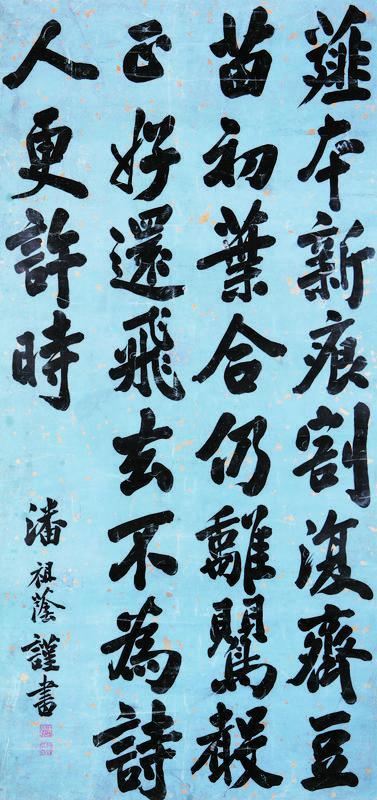 薤本新痕割復齊豆
苗初葉合仍離鸎聲
正好還飛去不為詩
人更許時
潘祖蔭謹書